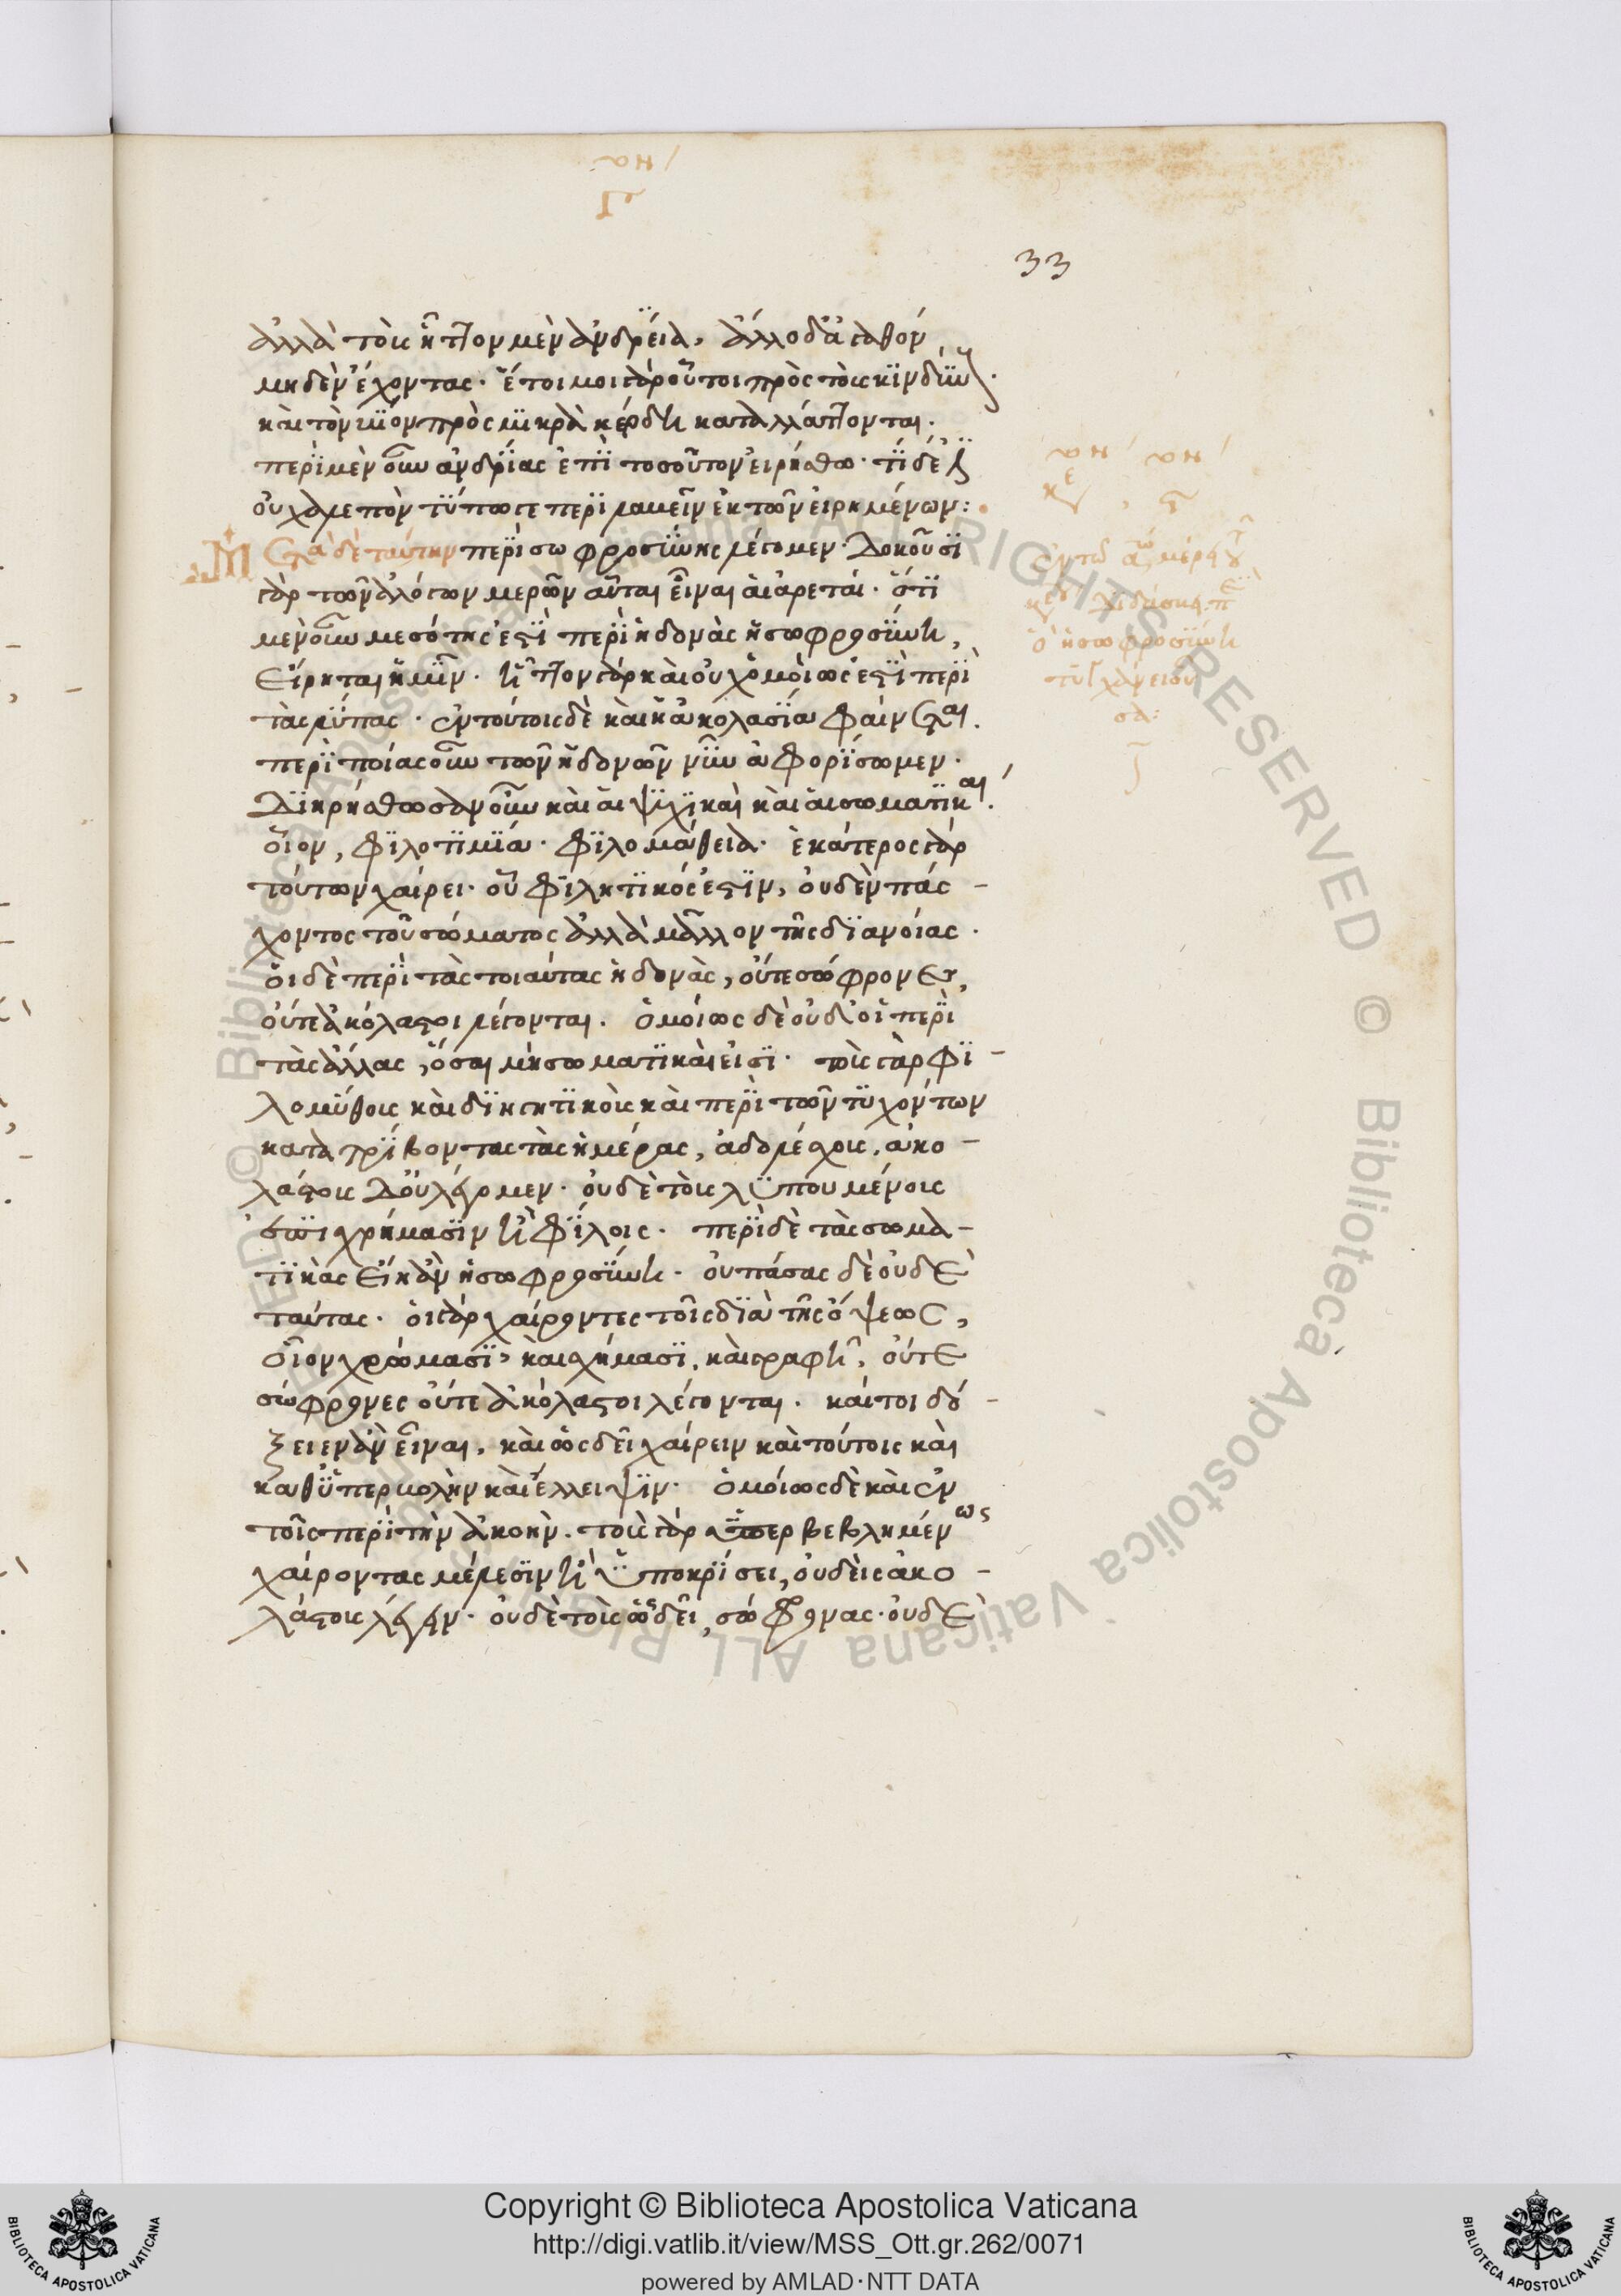 33
ἀλλὰ τοὺς ἧττον μὲν ἀνδρείους, ἄλλο δ' ἀγαθὸν
μηδὲν ἔχοντας. ἕτοιμοι γὰρ οὗτοι πρὸς τοὺς κινδύνους.
καὶ τὸν βίον πρὸς μικρὰ κέρδη καταλλάττονται.
περὶ μὲν οὖν ἀνδρίας ἐπὶ τοσοῦτον εἰρήσθω. τί δέ ἐστιν
οὐ χαλεπὸν τύπω γε περιλαβεῖν ἐκ τῶν εἰρημένων:
Μετὰ δὲ ταύτην περὶ σωφροσύνης λέγομεν. δοκοῦσι
γὰρ τῶν ἀλόγων μερῶν αὗται εἶναι αἱ ἀρεταί. ὅτι
μὲν οὖν μεσότης ἐστὶ περὶ ἡδονὰς ἡ σωφροσύνη,
εἴρηται ἡμῖν. ἧττον γὰρ καὶ οὐχ ὁμοίως ἐστὶ περὶ
τὰς λύπας. ἐν τούτοις δὲ καὶ ἡ ἀκολασία φαίνεται.
περὶ ποίας οὖν τῶν ἡδονῶν νῦν ἀφορίσωμεν.
διῃρήσθωσαν οὖν καὶ αἱ ψυχικαὶ καὶ αἱ σωματικαί.
οἷον, φιλοτιμία. φιλομάθεια. ἑκάτερος γὰρ
τούτων χαίρει. οὗ φιλητικός ἐστιν, οὐδὲν πάσ-
χοντος τοῦ σώματος ἀλλὰ μᾶλλον τῆς διανοίας.
οἱ δὲ περὶ τὰς τοιαύτας ἡδονὰς, οὔτε σώφρονες,
οὔτε ἀκόλαστοι λέγονται. ὁμοίως δὲ οὐδ' οἱ περὶ
τὰς ἄλλας, ὅσαι μὴ σωματικαὶ εἰσί. τοὺς γὰρ φι-
λομύθους καὶ διηγητικοὺς καὶ περὶ τῶν τυχόντων
κατατρίβοντας τὰς ἡμέρας, ἀδολέσχους, ἀκο-
λάστους δ' οὐ λέγομεν. οὐδὲ τοὺς λυπουμένους
ἐπὶ χρήμασιν ἢ φίλοις. περὶ δὲ τὰς σωμα-
τικὰς εἴη ἂν ἡ σωφροσύνη. οὐ πάσας δὲ οὐδὲ
ταύτας. οἱ γὰρ χαίροντες τοῖς διὰ τῆς ὄψεως,
οἷον χρώμασι, καὶ σχήμασι, καὶ γραφῇ, οὔτε
σώφρονες οὔτε ἀκόλαστοι λέγονται. καίτοι δό-
ξειεν ἂν εἶναι, καὶ ὡς δεῖ χαίρειν καὶ τούτοις καὶ
καθ' ὑπερβολὴν καὶ ἔλλειψιν. ὁμοίως δὲ καὶ ἐν
τοῖς περὶ τὴν ἀκοήν. τοὺς γὰρ ὑπερβεβλημένως
χαίροντας μέλεσιν ἢ ὑποκρίσει, οὐδεὶς ἀκο-
λάστους λέγει. οὐδὲ τοὺς ὡς δεῖ, σώφρονας. οὐδὲ
ὅτι ἡ σωφροσύνη
Copyright © Biblioteca Apostolica Vaticana
http://digi.vatlib.it/view/MSS_Ott.gr.262/0071
powered by AMLAD·NTT DATA
BIBLIOTECA APOSTOLICA VATICANA
BIBLIOTECA APOSTOLICA VATICANA